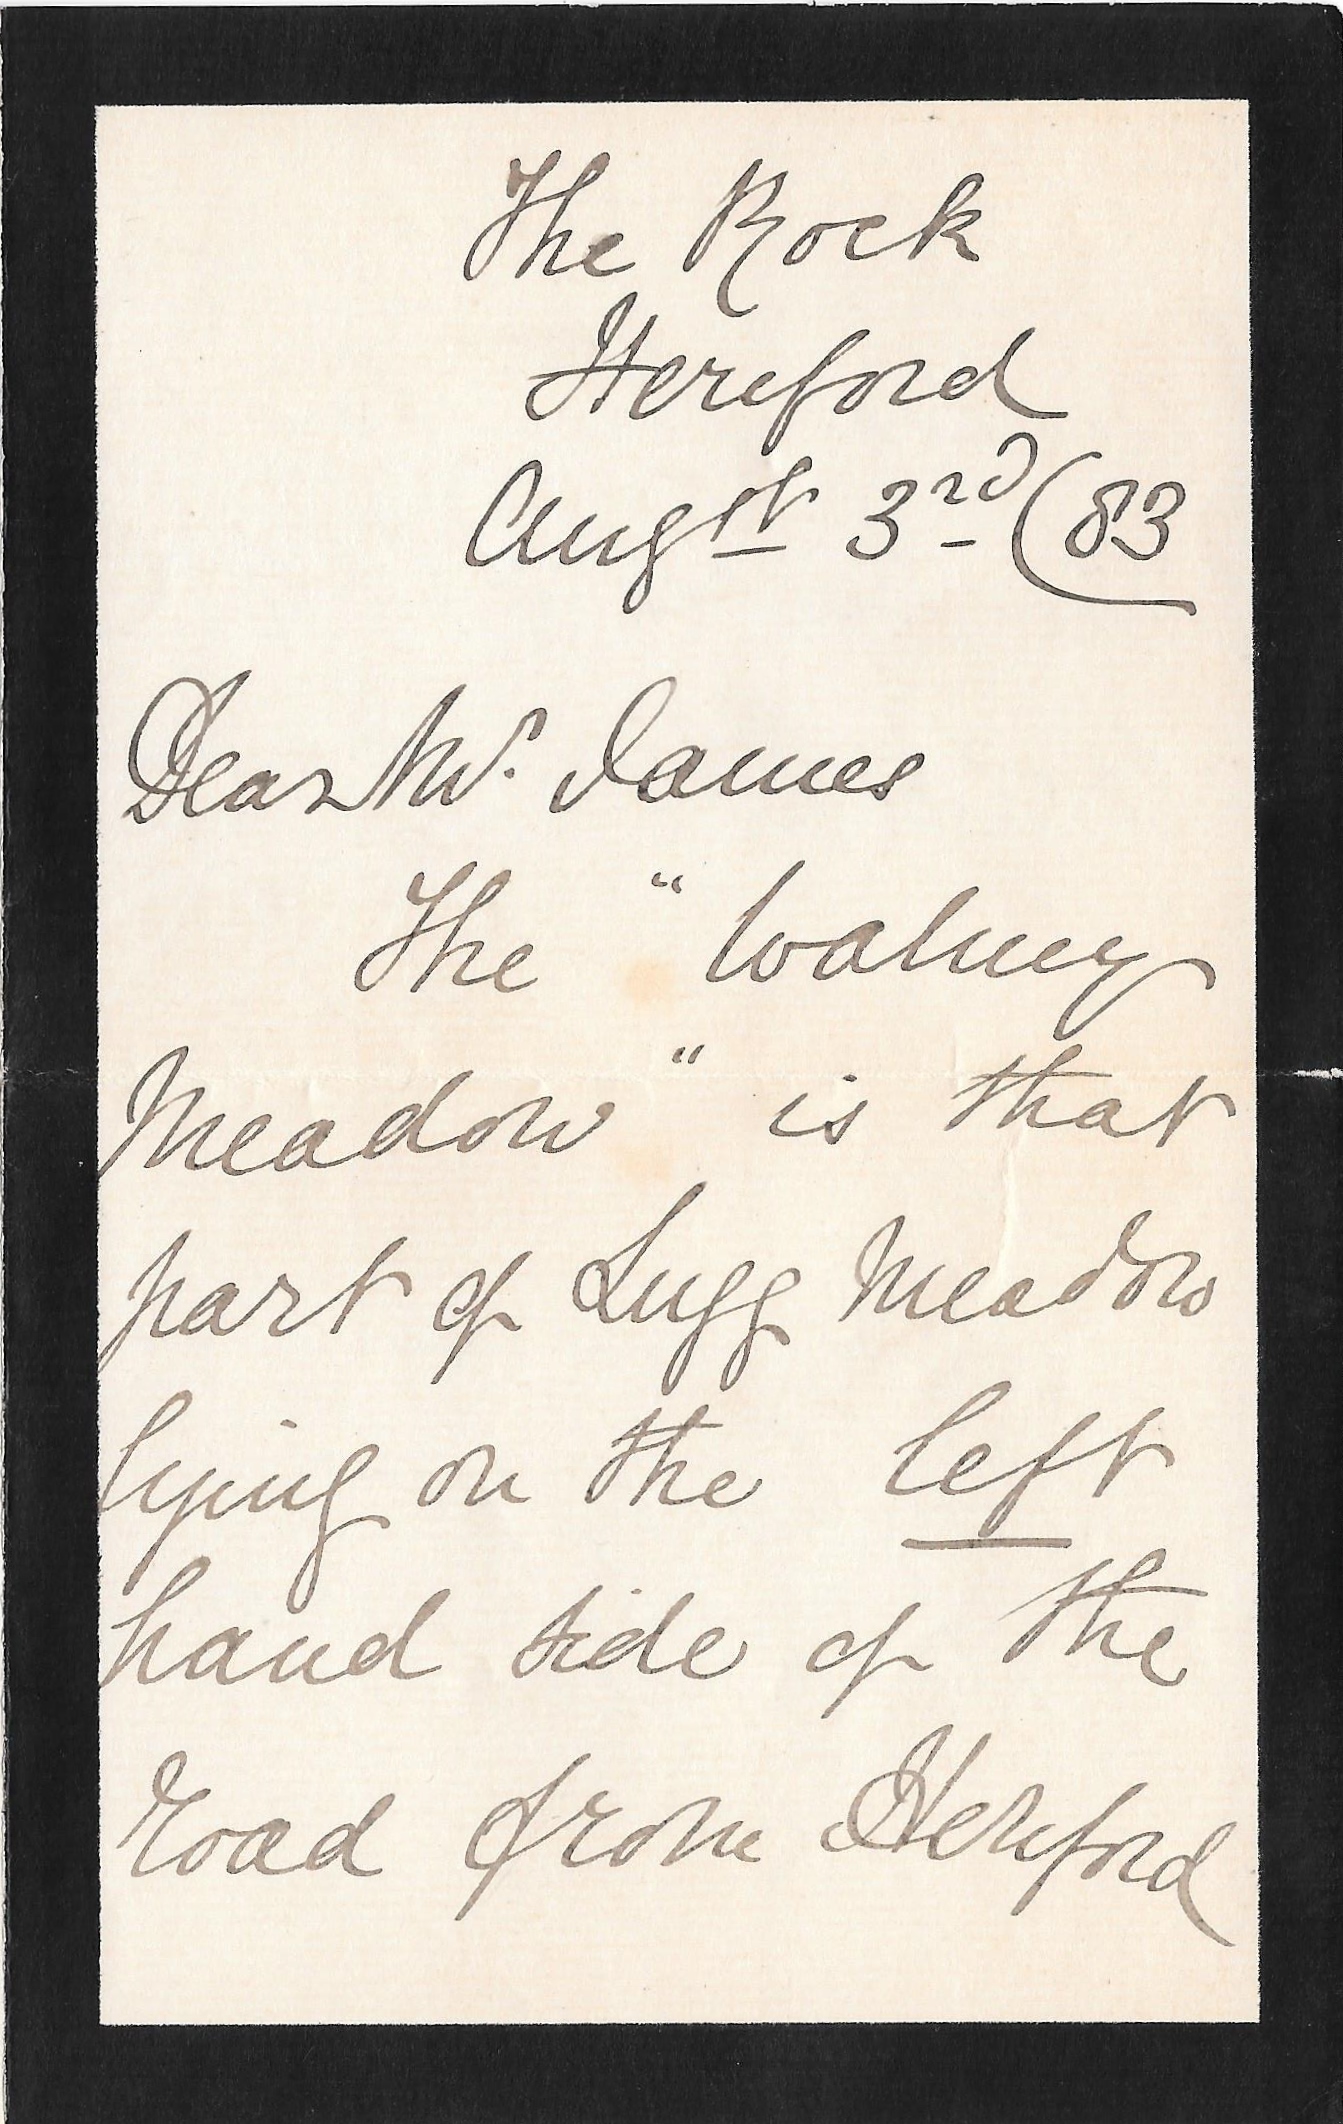 The Rock
Hereford
Augst 3rd (83
Dear Mr. James
The " Walney
Meadow " is that
part of Lugg Meadow
lying on the left
hand side of the
road from Hereford